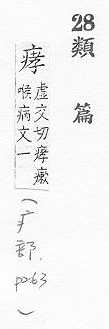 28類篇
痚
虛交切痚𤹪
喉病文一
(疒部.po:63)